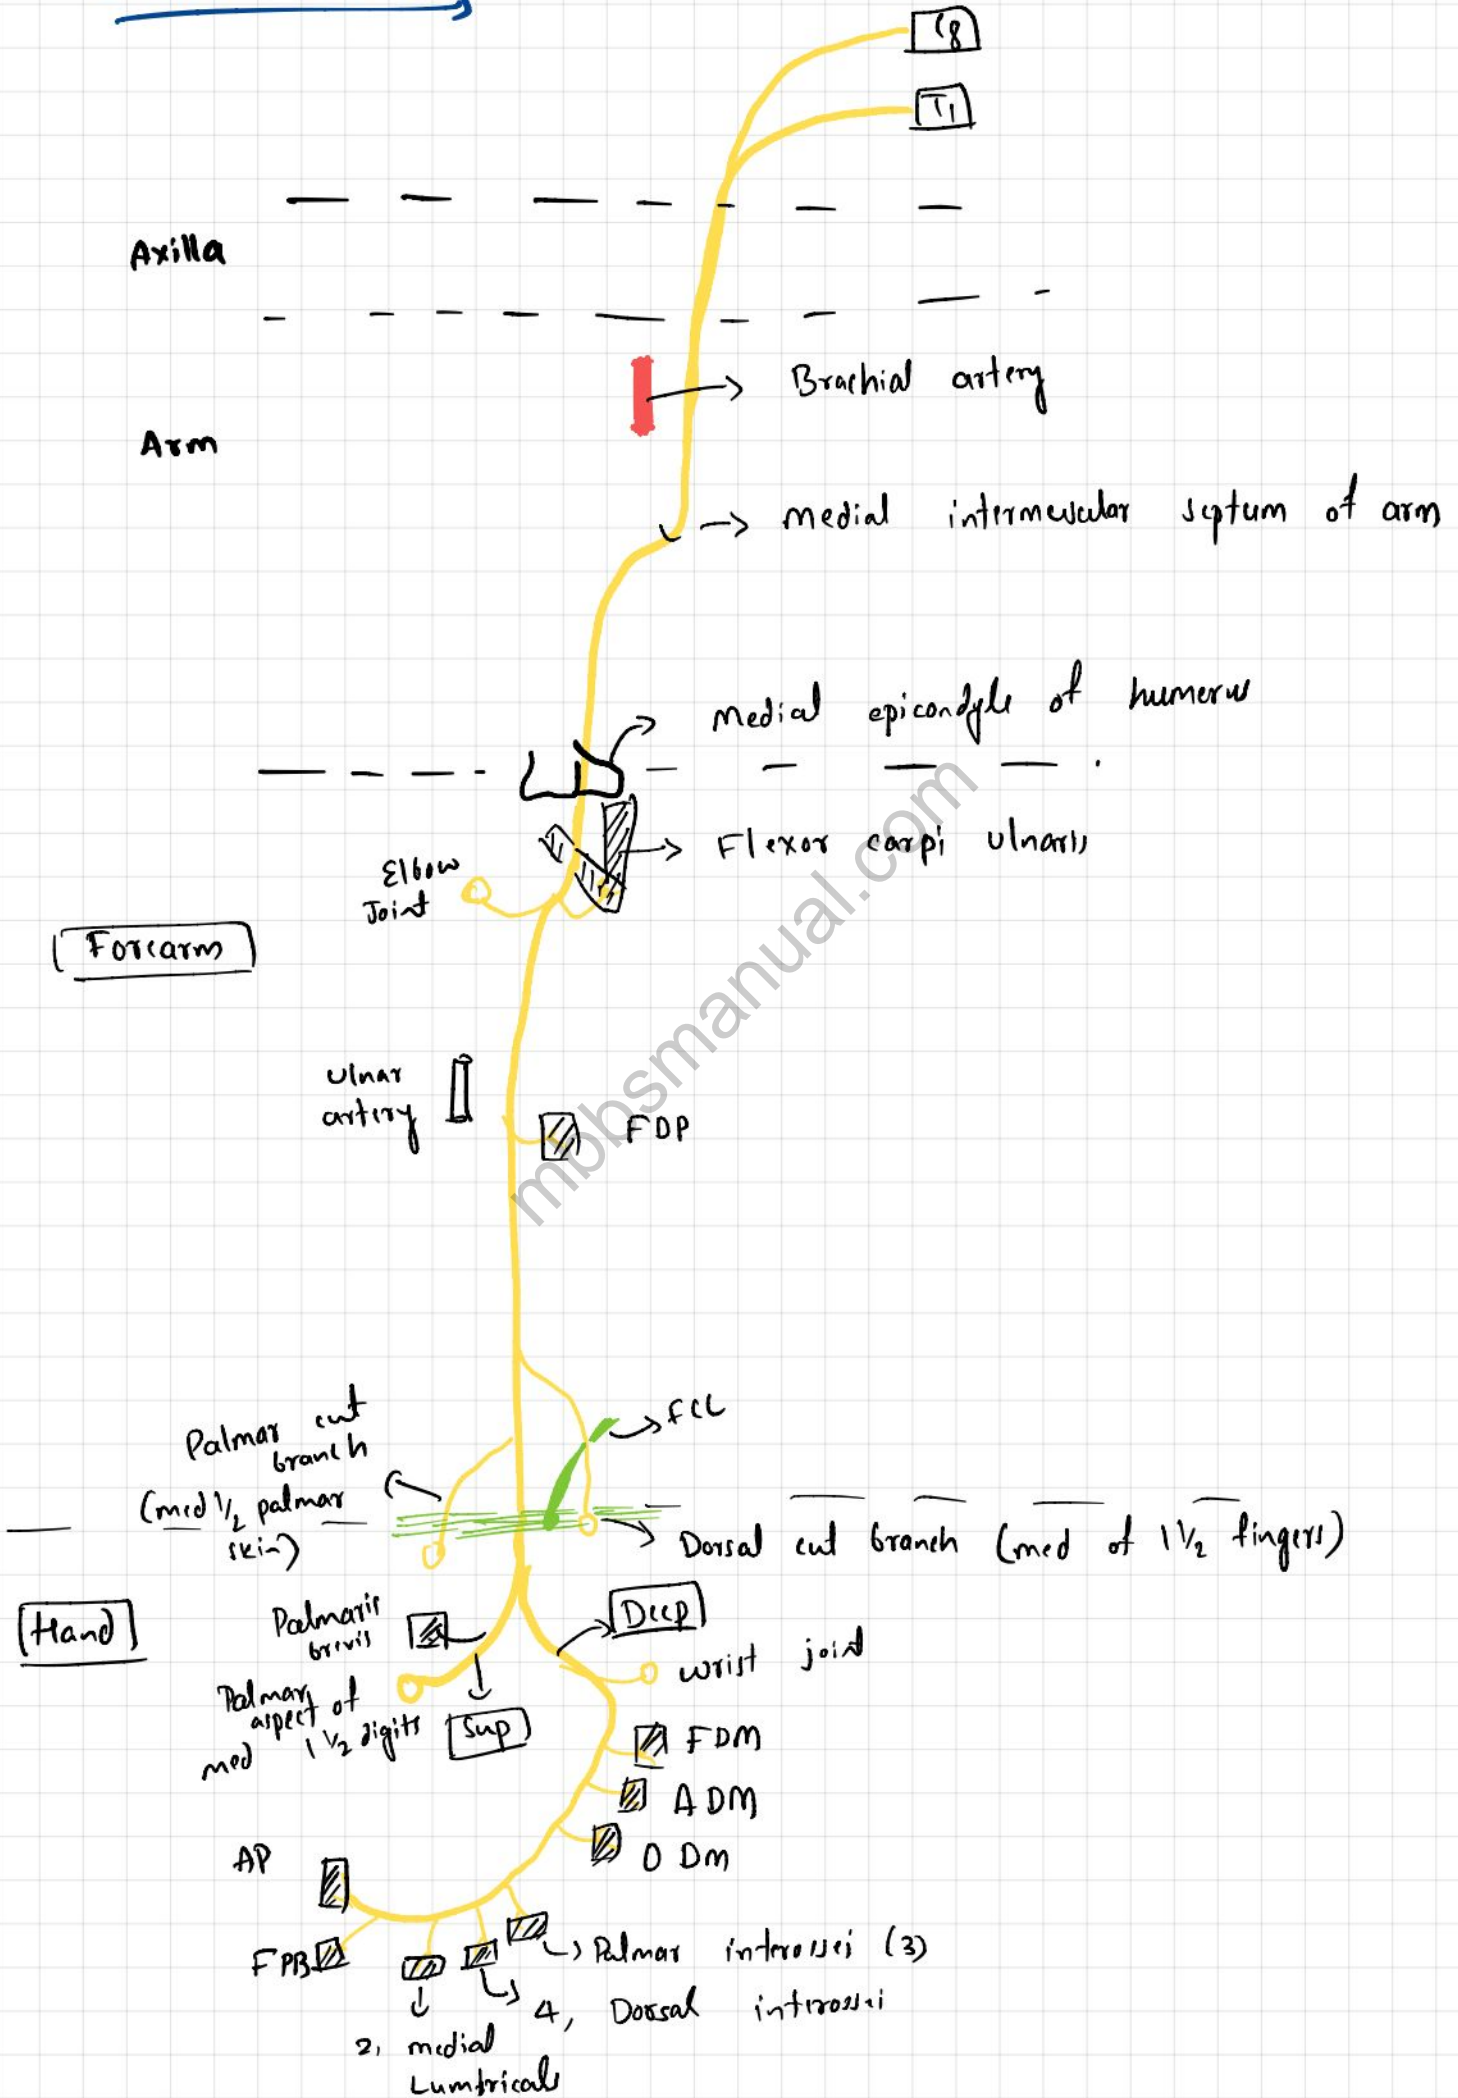 C8
T1
Axilla
Brachial artery
Arm
medial intermuscular septum of arm
medial epicondyle of humerus
Flexor carpi ulnaris
Elbow
Joint
Forearm
ulnar
artery
FDP
mbbsmanual.com
Palmar cut
branch
(med 1/2 palmar
skin)
FCU
Dorsal cut branch (med of 1 1/2 fingers)
Hand
Palmaris
brevis
Deep
wrist joint
Palmar
aspect of
med 1 1/2 digits
Sup
FDM
ADM
ODM
AP
FPB
Palmar interossei (3)
4, Dorsal interossei
2, medial
Lumbricals